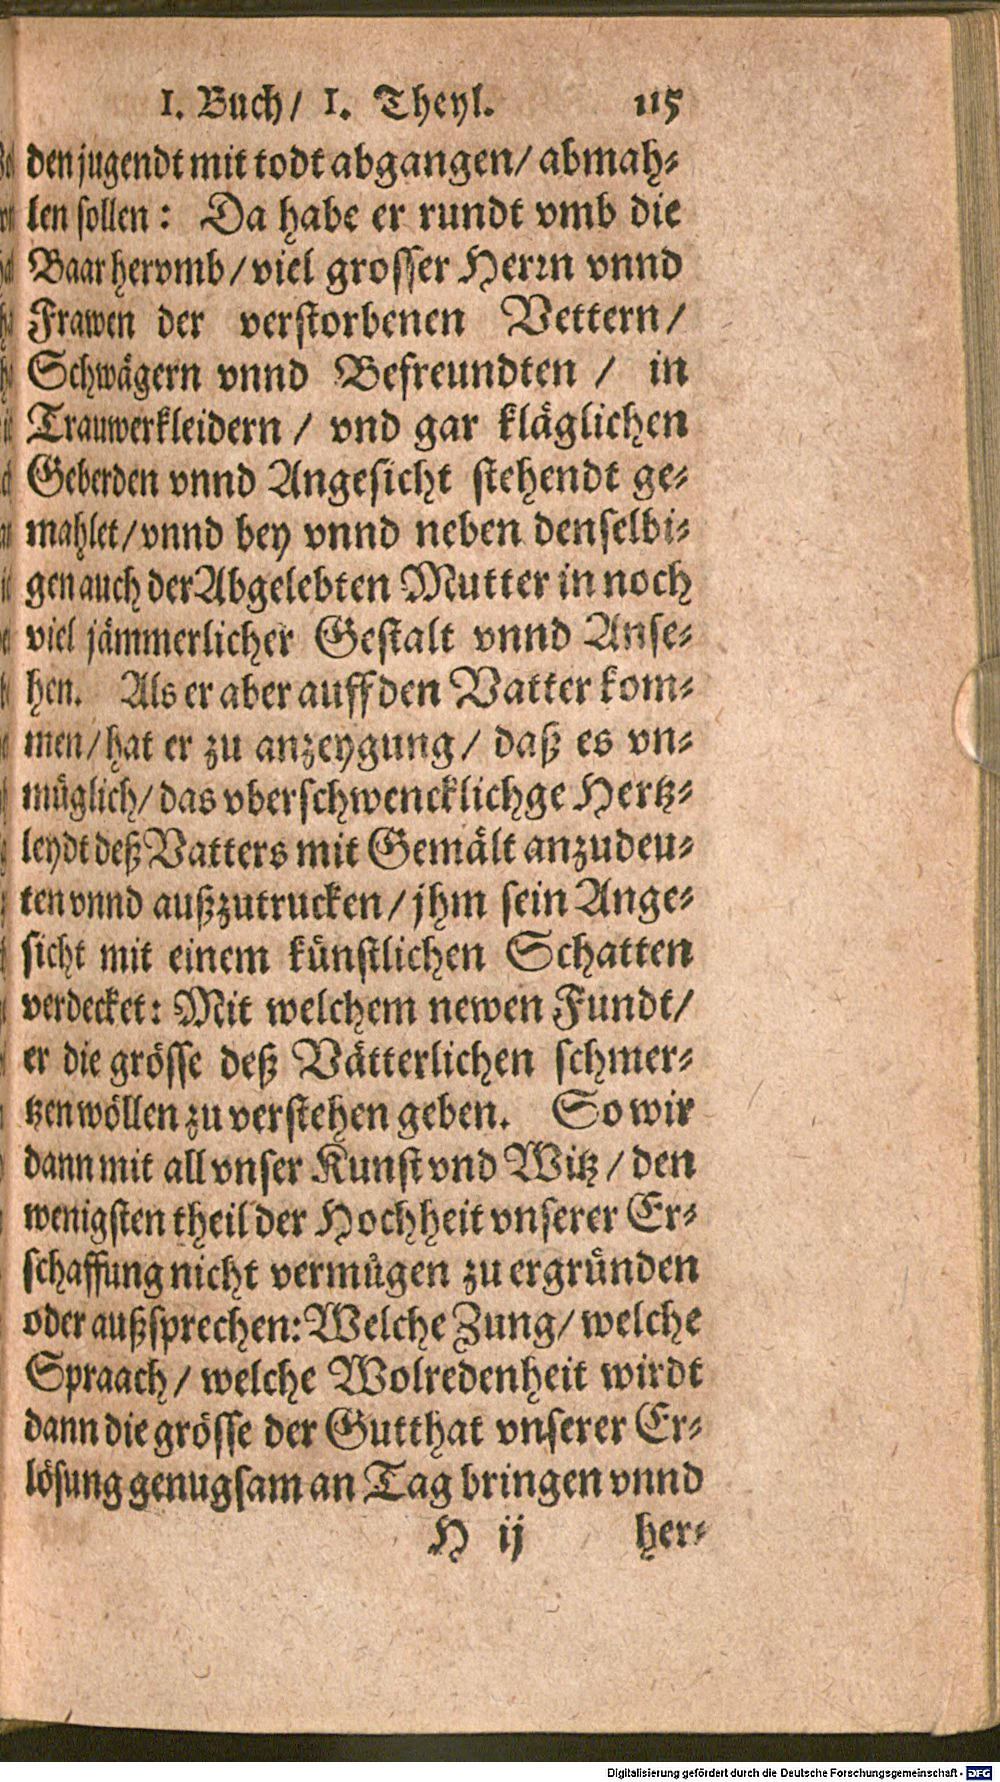 I. Buch/ I. Theyl. 115
den jugendt mit todt abgangen/ abmah-
len sollen: Da habe er rundt vmb die
Baar hervmb/ viel grosser Herrn vnnd
Frawen der verstorbenen Vettern/
Schwägern vnnd Befreundten / in
Trauwerkleidern / vnd gar kläglichen
Geberden vnnd Angesicht stehendt ge-
mahlet/ vnnd bey vnnd neben denselbi-
gen auch der Abgelebten Mutter in noch
viel jämmerlicher Gestalt vnnd Anse-
hen. Als er aber auff den Vatter kom-
men/ hat er zu anzeygung/ daß es vn-
müglich/ das vberschwencklichge Hertz-
leydt deß Vatters mit Gemält anzudeu-
ten vnnd außzutrucken/ jhm sein Ange-
sicht mit einem künstlichen Schatten
verdecket: Mit welchem newen Fundt/
er die grösse deß Vätterlichen schmer-
tzen wöllen zu verstehen geben. So wir
dann mit all vnser Kunst vnd Witz/ den
wenigsten theil der Hochheit vnserer Er-
schaffung nicht vermügen zu ergründen
oder außsprechen: Welche Zung/ welche
Spraach/ welche Wolredenheit wirdt
dann die grösse der Gutthat vnserer Er-
lösung genugsam an Tag bringen vnnd
H ij her-
Digitalisierung gefördert durch die Deutsche Forschungsgemeinschaft - DFG